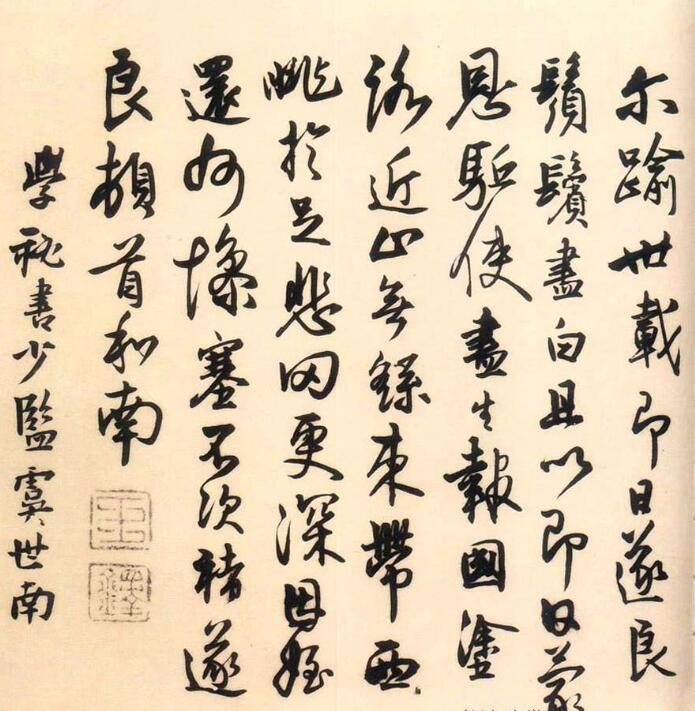 尓踰世載即日遂良
鬚鬢盡白且以即日蒙
恩驅使盡生報國塗
路近止無繇束帶西
眺於足悲罔更深因姪
還州慘塞不次褚遂
良頓首和南
王鐸
學祕書少監虞世南